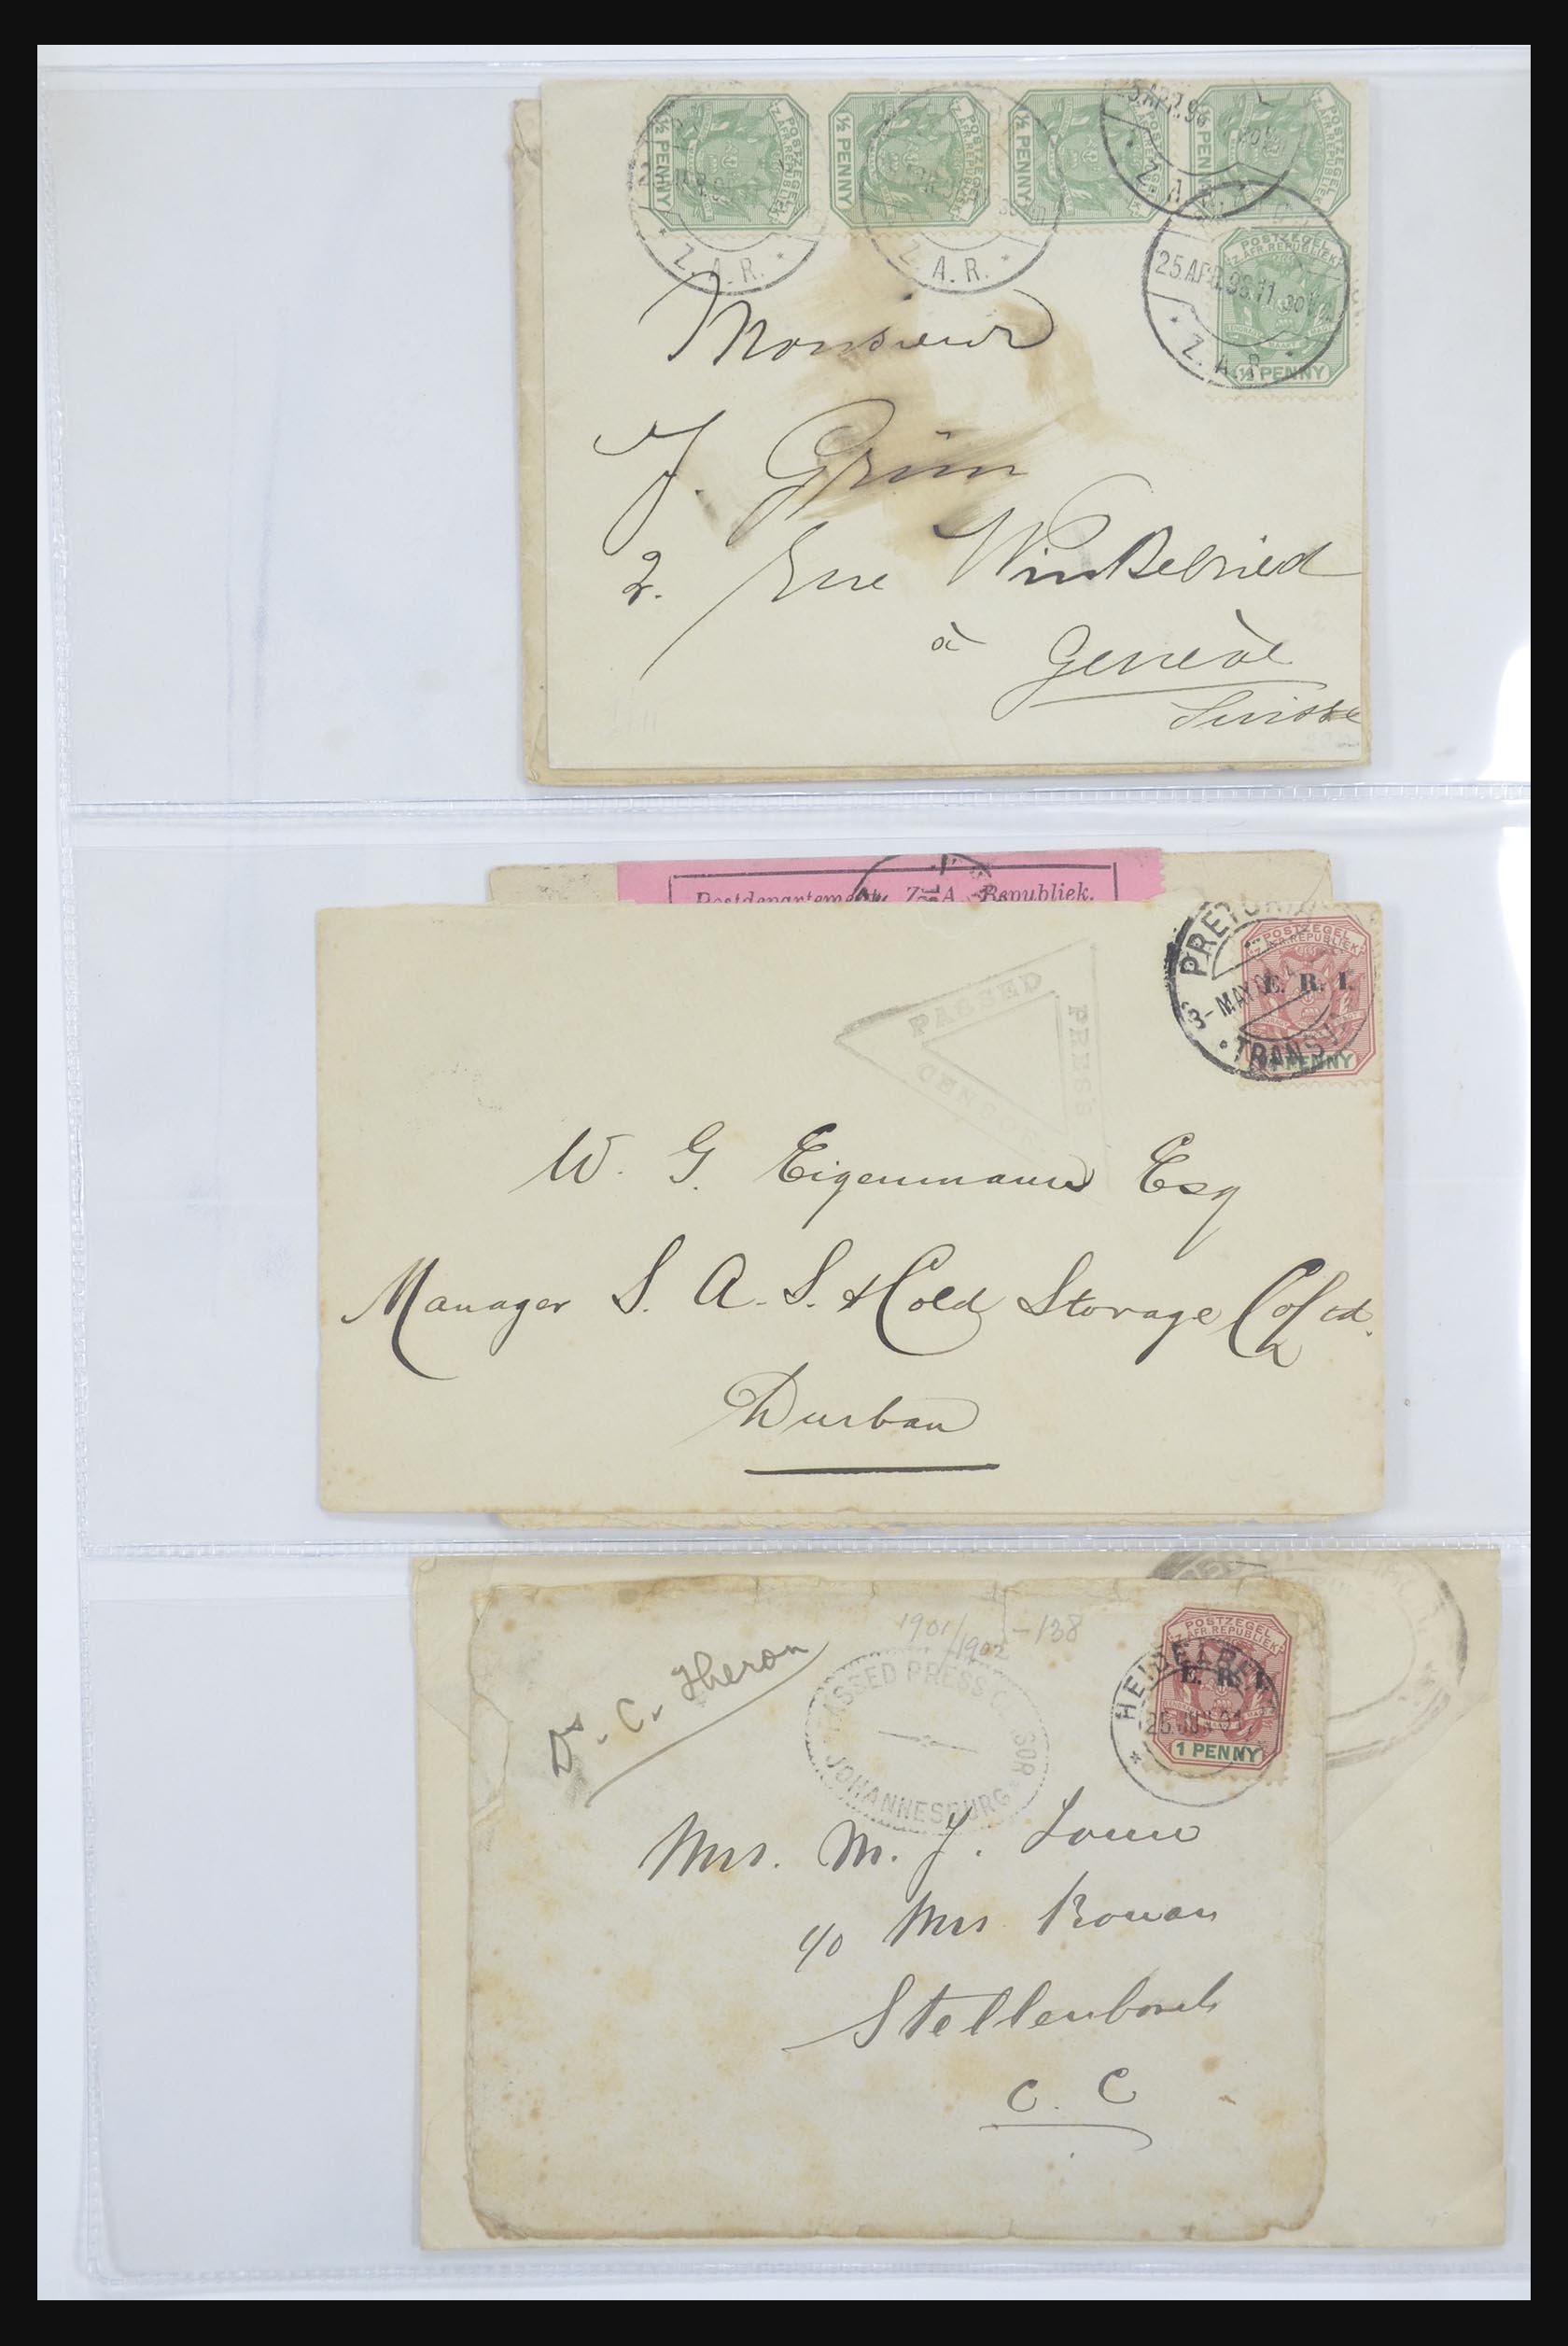 POSTZEGEL Z. AFR. REPUBLIEK ½ PENNY
POSTZEGEL Z. AFR. REPUBLIEK ½ PENNY
POSTZEGEL Z. AFR. REPUBLIEK ½ PENNY
POSTZEGEL Z. AFR. REPUBLIEK ½ PEN
25 APR. 96
Z. A. R.
Z. A. R.
Z. A.
POSTZEGEL
Z. AFR. REPUBLIEK
½ PENNY
25. APR. 96. 11 30 V.M.
Z. A. R.
Monsieur
J. Grün
2. Rue Winkelried
à Genève
Suisse
Postdepartement, Z. A. Republiek.
PRETORIA
3- MAY 01
TRANSV
POSTZEGEL
Z. AFR. REPUBLIEK
E. R. I.
PENNY
PASSED
PRESS
CENSOR
W. G. Eigenmann Esq
Manager S. A. S. & Cold Storage Co Ltd.
Durban
1901/1902 -138
Ds. C. Theron
PASSED PRESS C SOR
JOHANNESBURG
POSTZEGEL
Z. AFR. REPUBLIEK
E. R. I.
1 PENNY
HEIDELBERG
25 JUN 01
Mrs. M. J. Louw
c/o Mrs Rowan
Stellenbosch
C. C